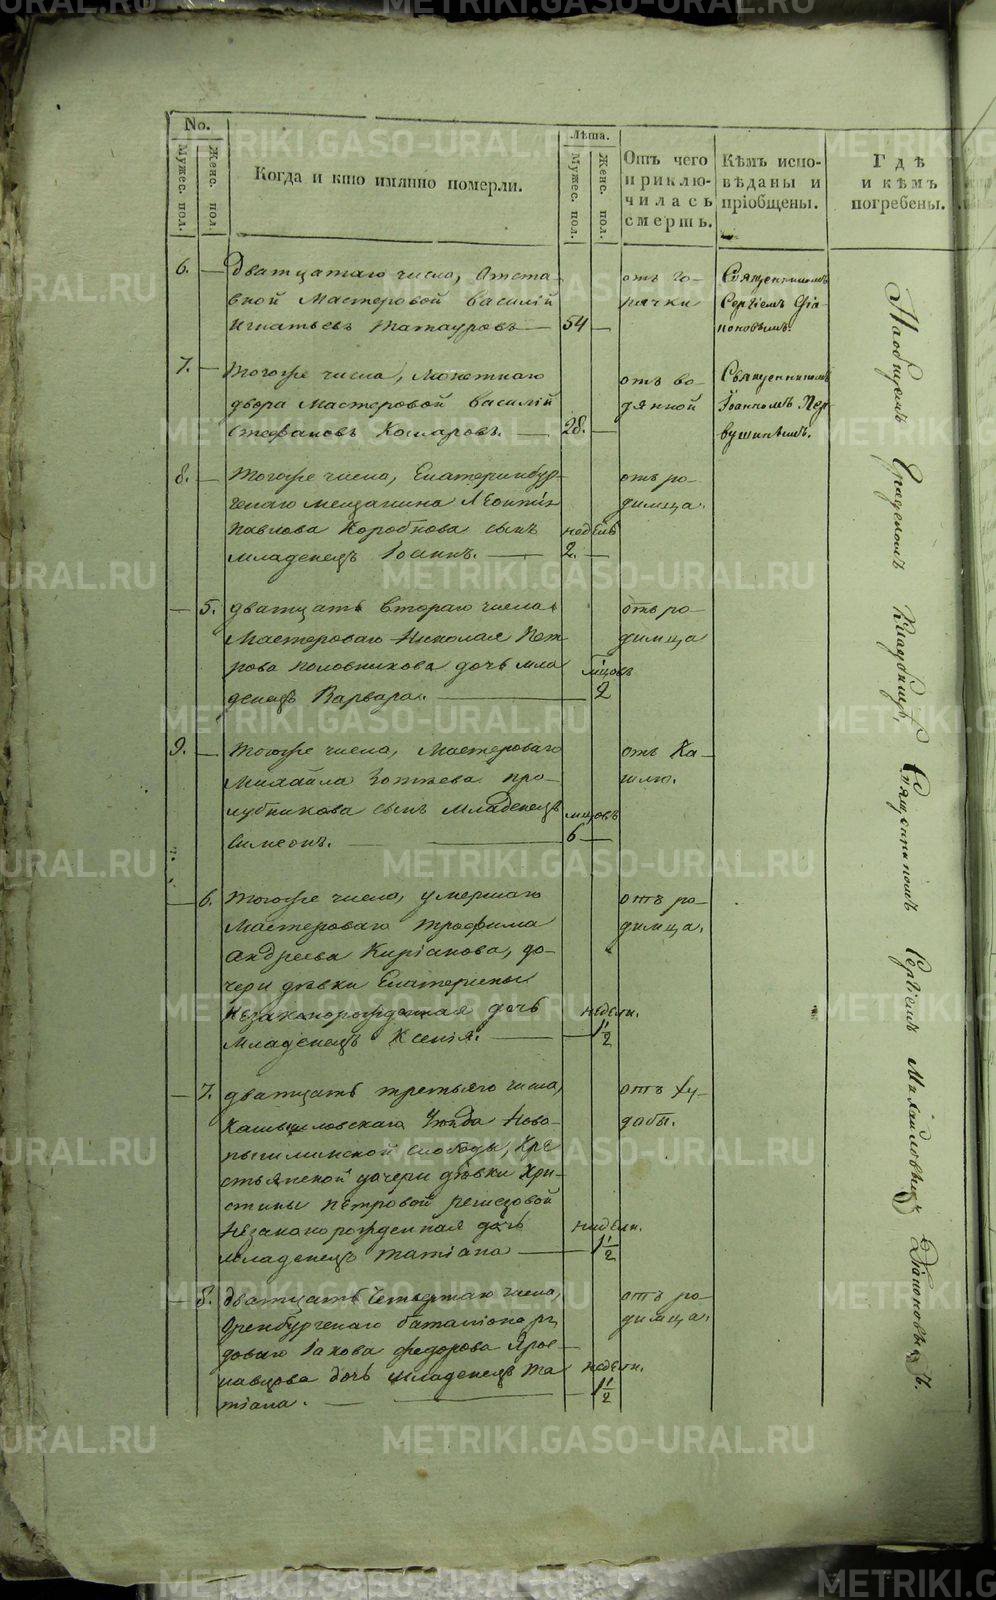 No.
Мужес. пол.
Женс. пол.
Когда и кто имянно померли.
Лѣта.
Мужес. пол.
Женс. пол.
Отъ чего
приклю-
чилась
смерть.
Кѣмъ испо-
вѣданы и
пріобщены.
Гдѣ
и кѣмъ
погребены.
6. — Дватцатаго числа, Отста-
вной Мастеровой Василій
Игнатьевъ Татауровъ — 54 —
отъ го-
рячки
Священникомъ
Сергіемъ Діа-
поновымъ.
7. — Тогоже числа, Монетнаго
двора Мастеровой Василій
Стефановъ Комаровъ. — 28. —
отъ во-
дянной
Священникомъ
Іоанномъ Пер-
вушинымъ.
8. — Тогоже числа, Екатеринбур-
гскаго мещанина Леонтія
Павлова Коробкова сынъ
младенецъ Іоаннъ. — недѣль
2. —
отъ ро-
димца.
— 5. дватцать втораго числа
Мастероваго Николая Пет-
рова Половникова дочь мла
денецъ Варвара. — мцовъ
2
отъ ро-
димца
9. — Тогоже числа, Мастероваго
Михайла Зотѣева про-
лубникова сынъ Младенецъ
Симеонъ. — мцовъ
6 —
отъ Ка-
шлю.
— 6. Тогоже числа, умершаго
Мастероваго Трофима
Андреева Киріанова, до-
чери дѣвки Екатерины
Незаконорожденная дочь
Младенецъ Ксенія. — недели.
1 1/2
отъ ро-
димца.
— 7. дватцать третьяго числа,
Камышловскаго Уѣзда Ново-
пышминской слободы, Кре
стьянской дочери дѣвки Хри-
стины Петровой
Незаконорожденная дочь
младенецъ Татіана — недели.
1 1/2
отъ Ху-
добы.
— 8. Дватцать Четвертаго числа,
Оренбургскаго баталіона ря
доваго Іакова Федорова Яро-
славцова дочь младенецъ Та
тіана. — недели.
1 1/2
отъ ро-
димца.
На общемъ Градскомъ Кладбищѣ, Священникомъ Сергіемъ Михайловымъ Діапоновымъ.
METRIKI.GASO-URAL.RU